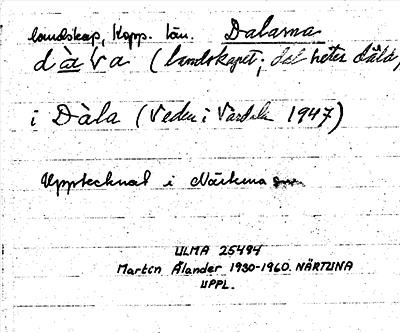 landskap, Kopp. län. Dalarna
dàva (landskapet; det heter dàla)
i Dàla (Veden i Vårdala 1947)
Upptecknat i Närtuna
ULMA 25494
Martin Ålander 1930-1960. NÄRTUNA
UPPL.